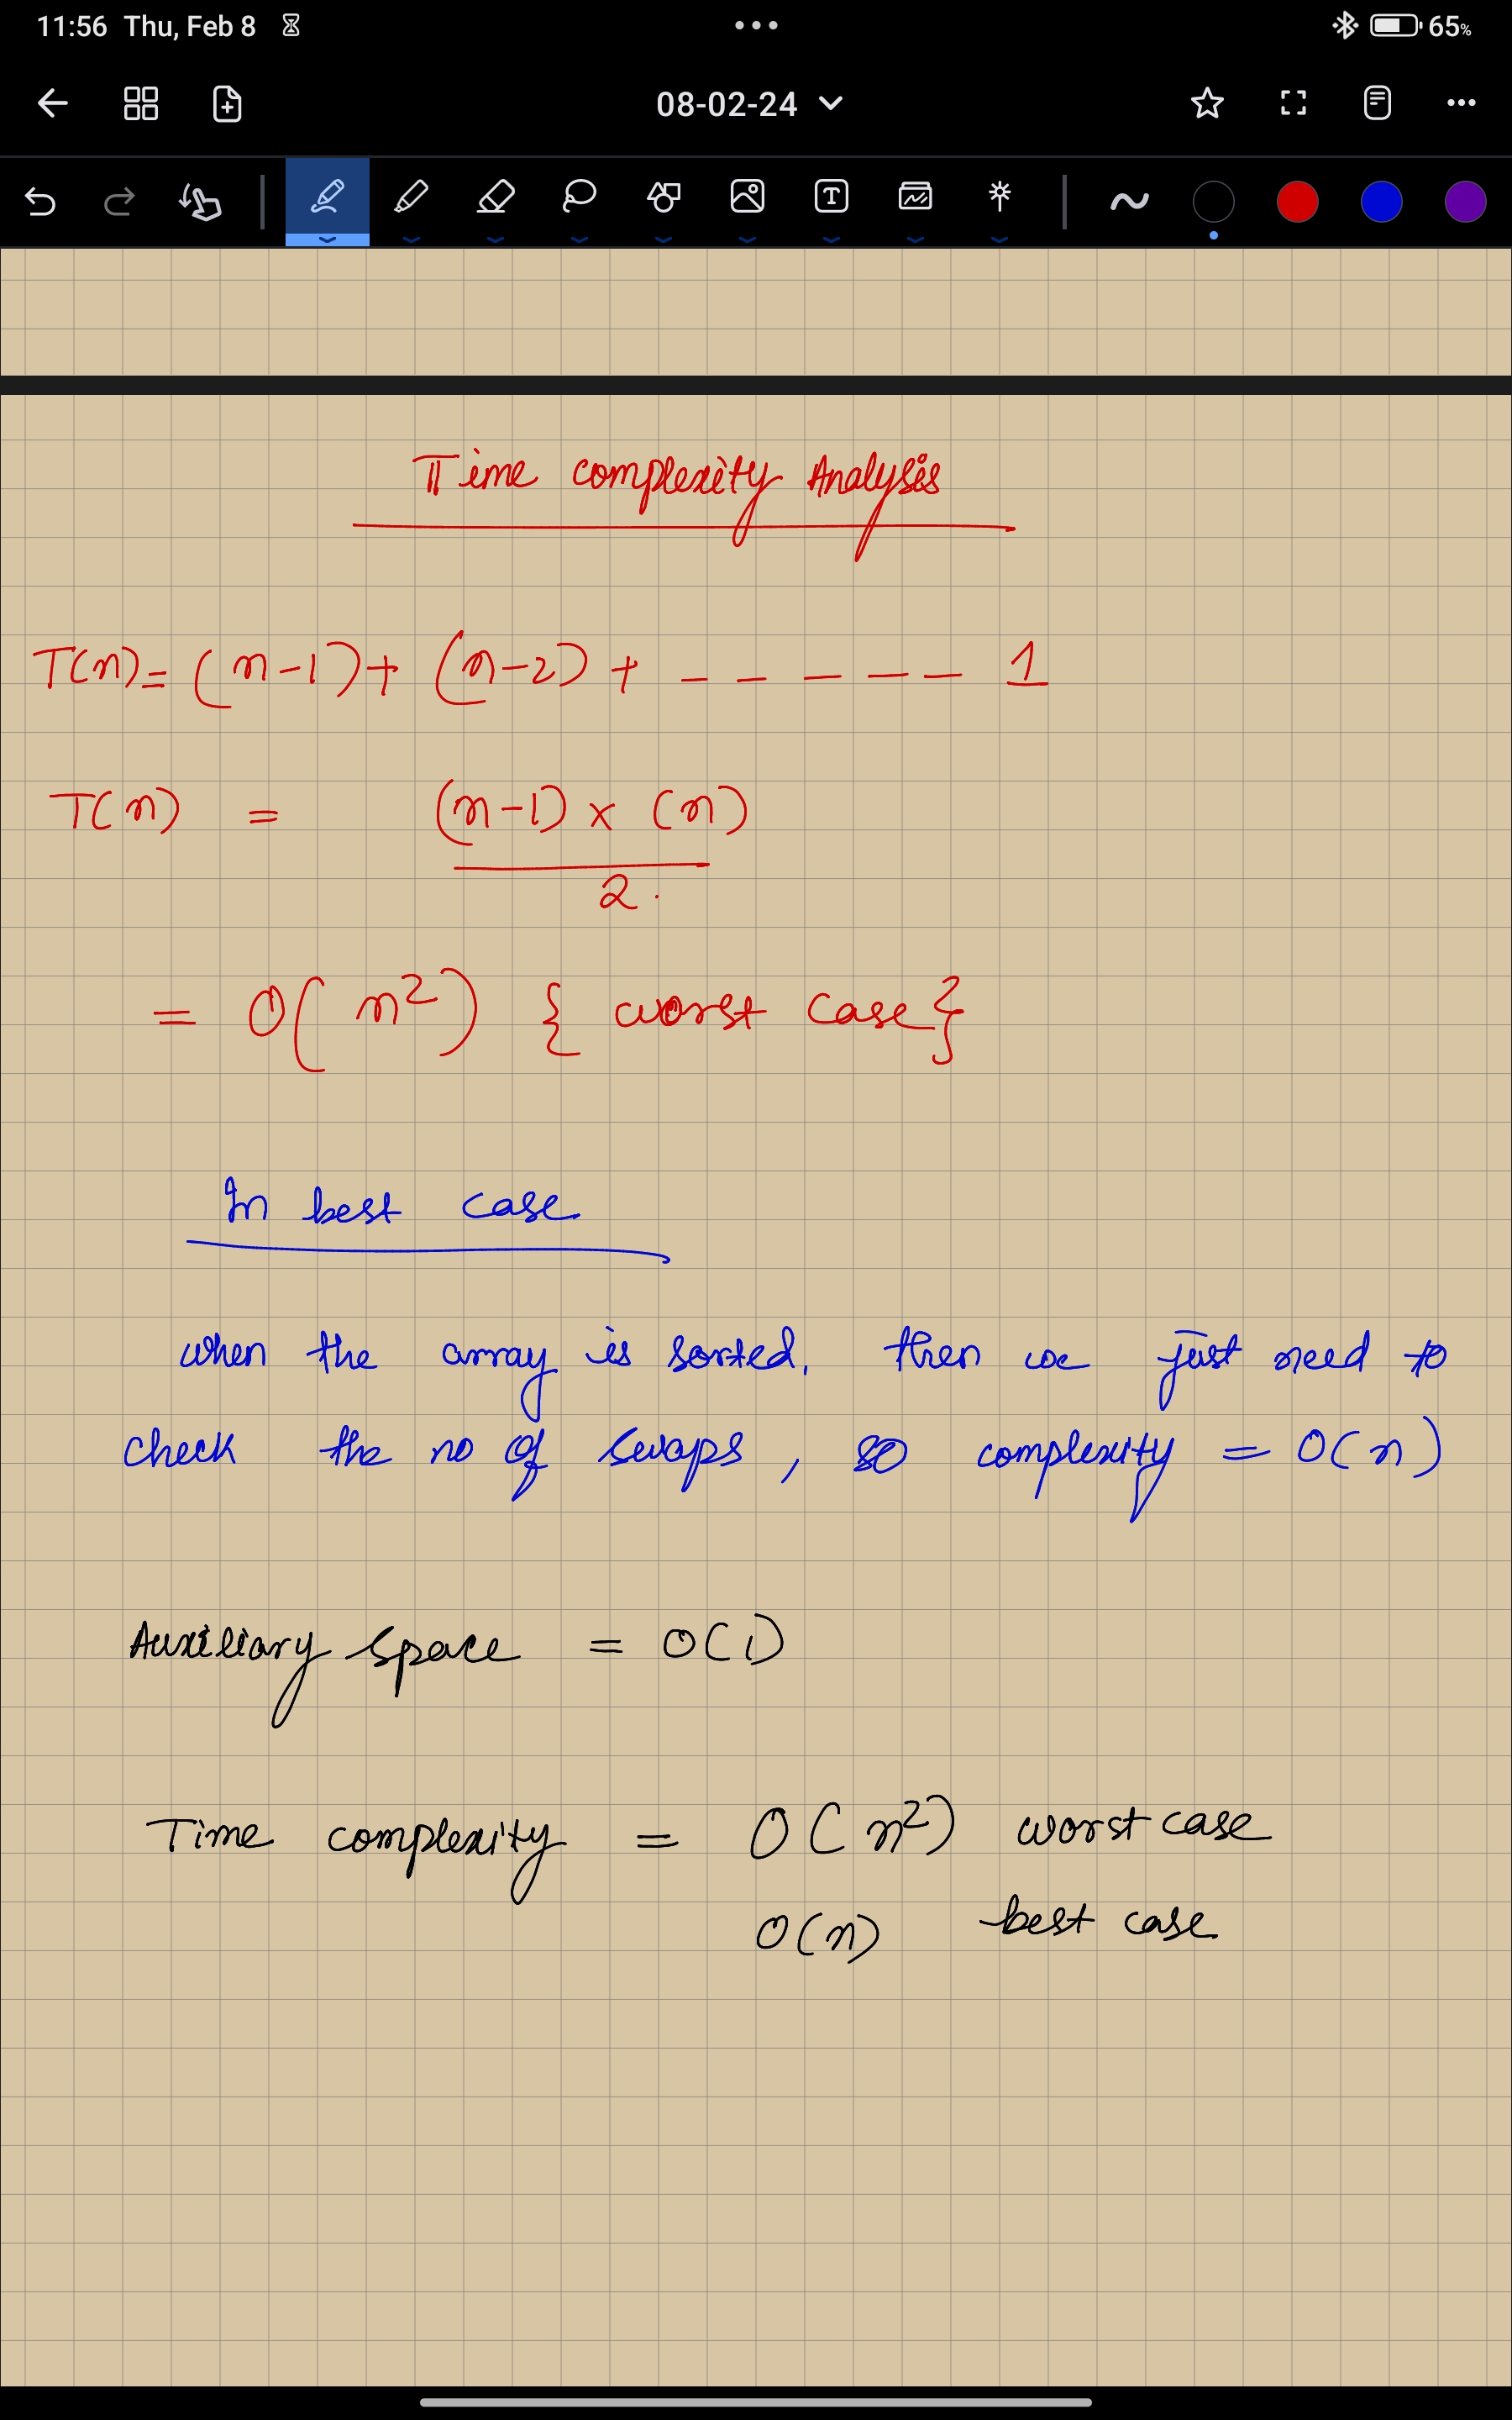 11:56 Thu, Feb 8 65%
08-02-24
Time complexity Analysis
T(n) = (n-1) + (n-2) + - - - - - 1
T(n) = (n-1) x (n)
2.
= O(n²) { worst case }
In best case
when the array is sorted, then we just need to
check the no of swaps, so complexity = O(n)
Auxiliary space = O(1)
Time complexity = O(n²) worst case
O(n) best case